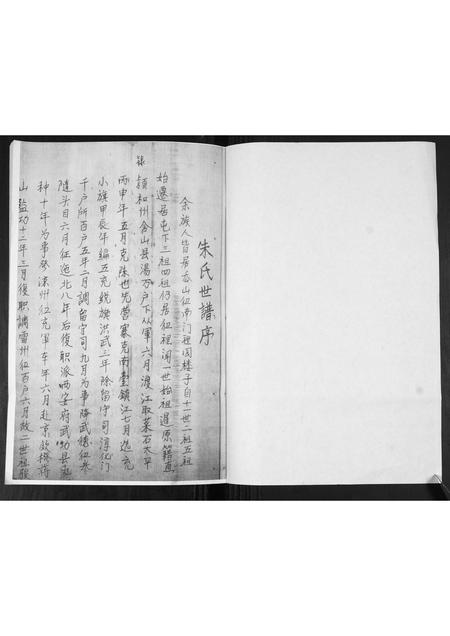 朱氏世譜序
余族人皆居岙山衛南门裡固樓子自十一世二祖五祖
始遷居屯下三祖四祖仍居衛裡溯一世始祖遲原籍直
隸
潁和州含山县湯万户下从軍六月渡江取采石太平
丙申年五月克陈也先营寨克南臺鎮江七月选充
小旗甲辰年編五充銃旗洪武三年除留守司淳化门
千户所百户五年二月調留守司九月为事降武德衛兵
隨头目六月征迤北八年后復职派西安府武功县屯
种十年为事發涼州衛充軍本年六月赴京欽撥蒋
山監功十二年三月復职調雷州衛百户六月故二世祖敬